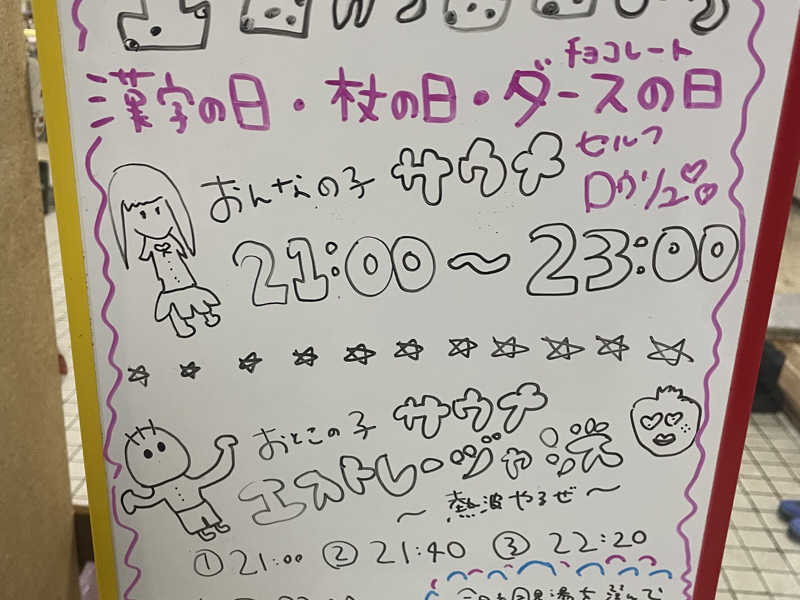 漢字の日・杖の日・ダースの日
チョコレート
おんなの子 サウナ
セルフ
ロウリュ
21:00〜23:00
おとこの子 サウナ
エストレージャ:ジズ
〜熱波やるぜ〜
①21:00 ②21:40 ③22:20